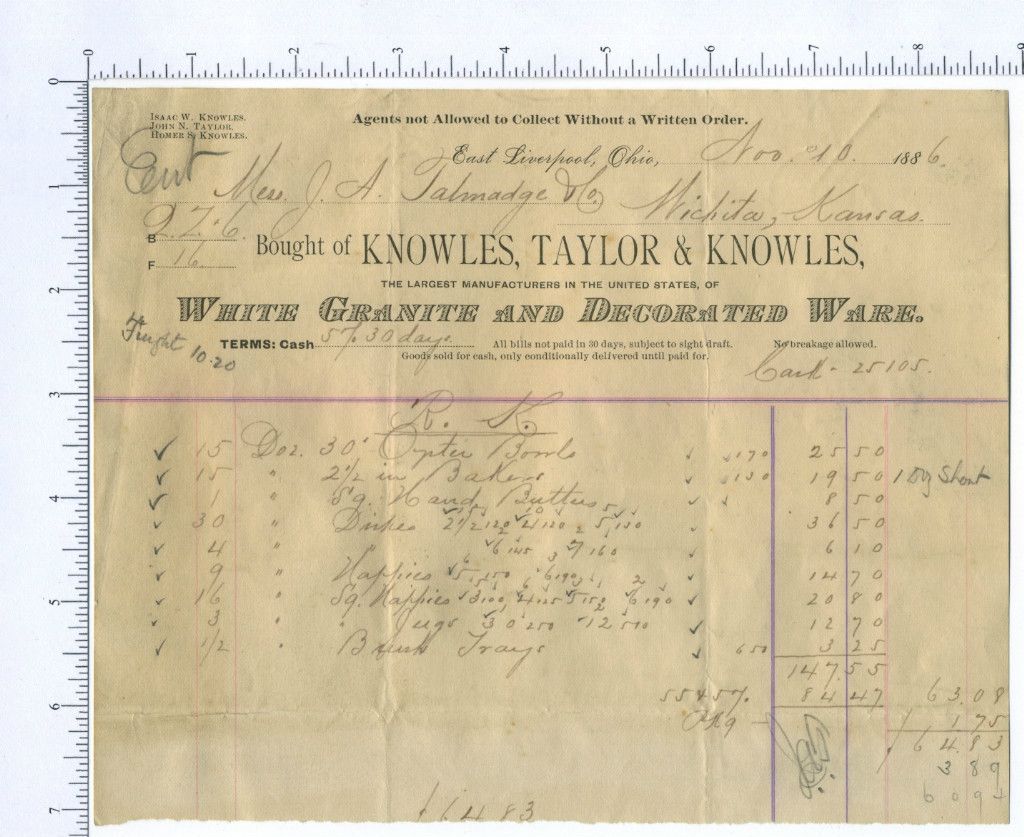 Isaac W. Knowles.
John N. Taylor.
Homer S. Knowles.
Agents not Allowed to Collect Without a Written Order.
East Liverpool, Ohio, Nov. 10. 1886.
Mess. J. A. Talmadge & Co. Wichita, Kansas.
B
F 16
Bought of KNOWLES, TAYLOR & KNOWLES,
THE LARGEST MANUFACTURERS IN THE UNITED STATES, OF
WHITE GRANITE AND DECORATED WARE.
Freight 10.20
TERMS: Cash 5% 30 days. All bills not paid in 30 days, subject to sight draft. No breakage allowed.
Goods sold for cash, only conditionally delivered until paid for.
25105.
R. K.
15 Doz. 30s Oyster Bowls 170 25 50
15 " 2½ in Bakers 130 19 50 1 Doz Short
1 " Sq. Hand Butters 8 50
30 " Dishes 36 50
4 " 6 145 7 160 6 10
9 " Nappies 14 70
16 " Sq. Nappies 20 80
3 " " Jugs 12 70
1/2 " Brush Trays 650 3 25
147.55
84 47 63.08
Pkg 1 75
64.83
3 89
60 94
64 83